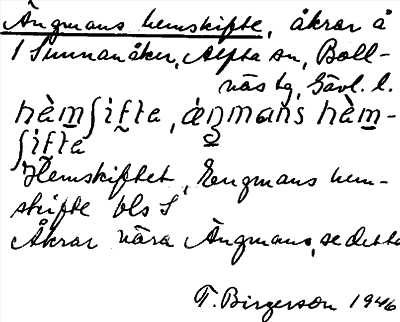 Ängmans hemskifte, åkrar å
1 Sunnanåker, Alfta sn, Boll-
näs tg, Gävl. l.
hèm∫ifta, áŋmans hèm-
∫ifta
Hemskiftet, Engmans hem-
skifte bls S
Åkrar nära Ängmans, se detta
T. Birgerson 1946